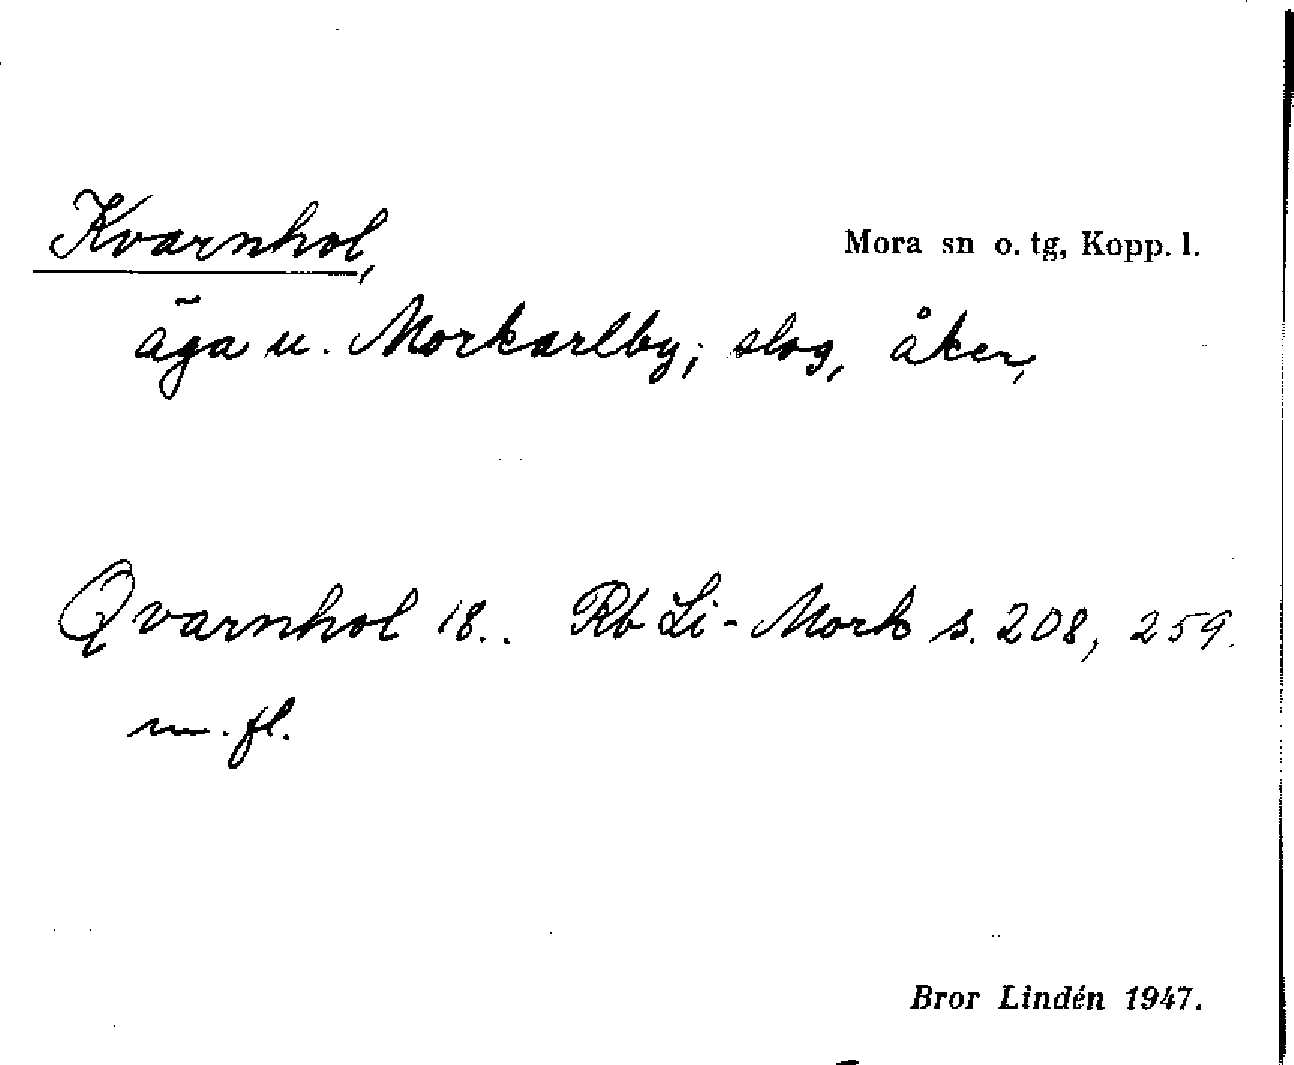 Kvarnhol,
Mora sn o. tg, Kopp. l.
äga u. Morkarlby; slog, åker,
Qvarnhol 18.. Rb Li-Mork s. 208, 259.
m. fl.
Bror Lindén 1947.